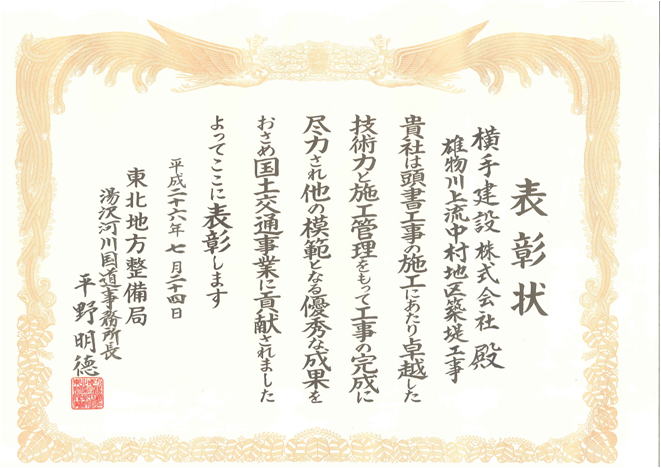 表彰状
横手建設株式会社 殿
雄物川上流中村地区築堤工事
貴社は頭書工事の施工にあたり卓越した
技術力と施工管理をもって工事の完成に
尽力され他の模範となる優秀な成果を
おさめ国土交通事業に貢献されました
よってここに表彰します
平成二十六年七月二十四日
東北地方整備局
湯沢河川国道事務所長
平野明徳